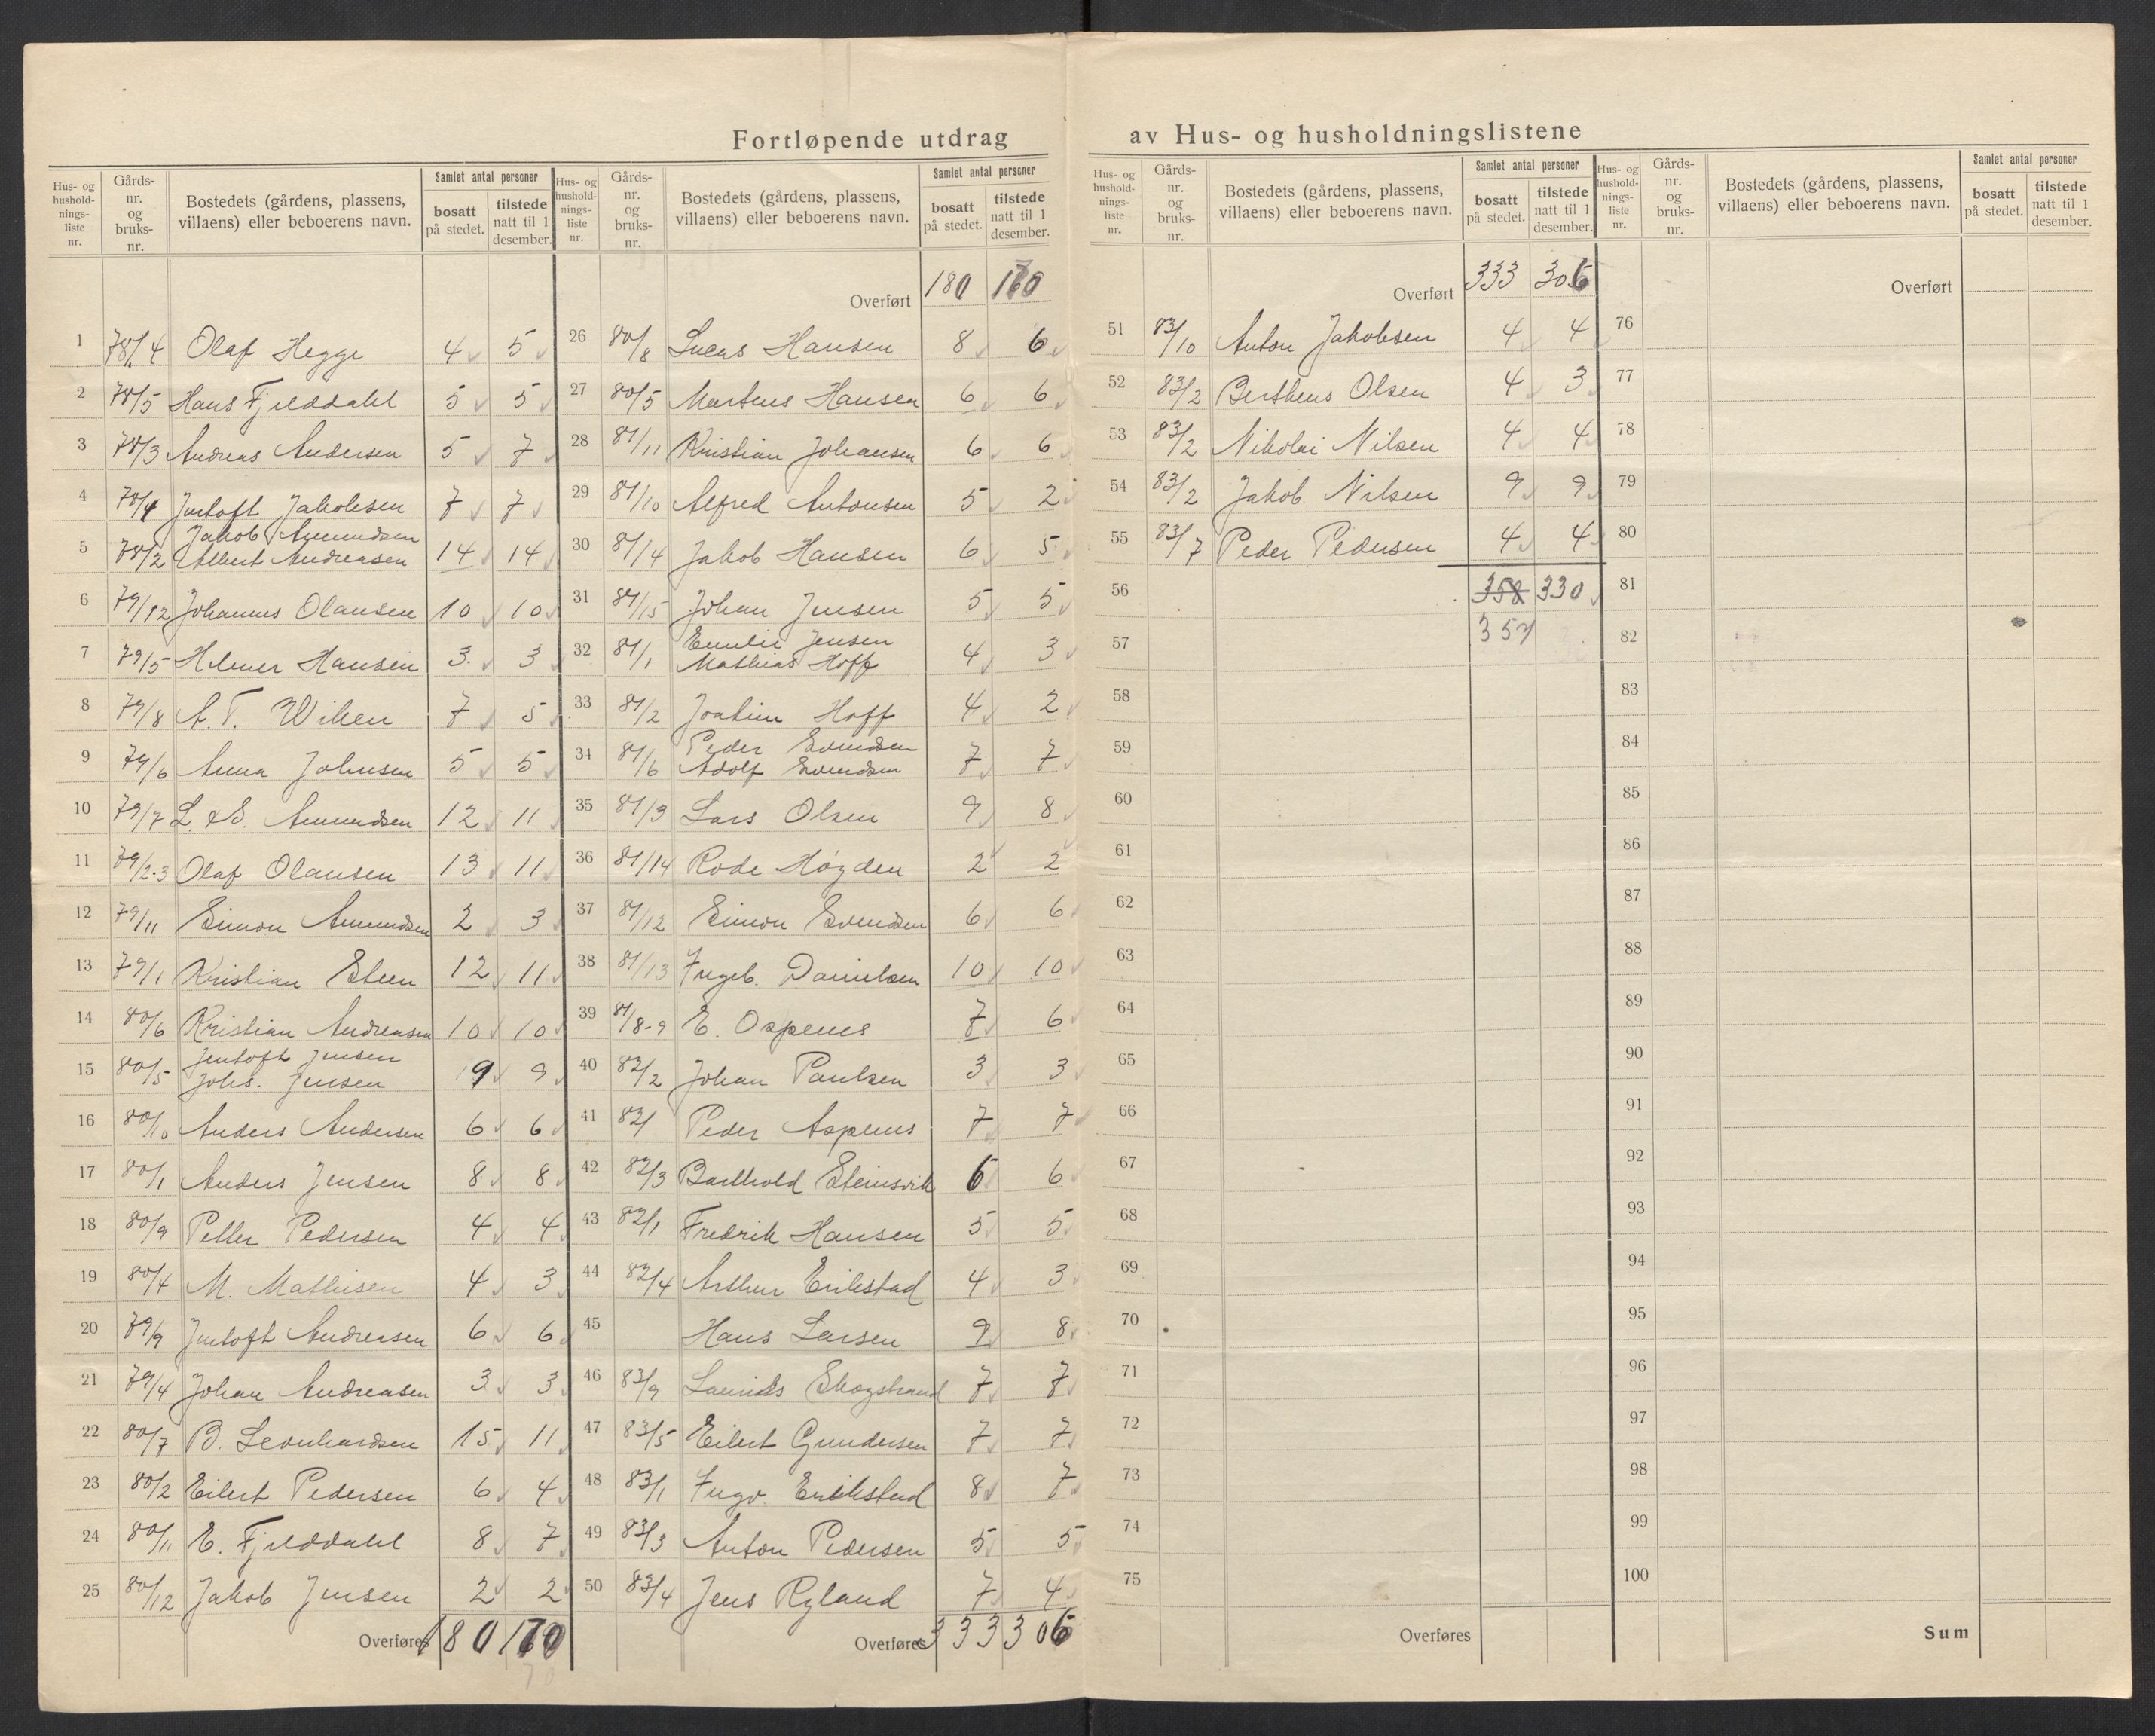 Fortløpende utdrag av Hus- og husholdningslistene
Hus- og hushold-nings-liste nr. | Gårds-nr. og bruks-nr. | Bostedets (gårdens, plassens, villaens) eller beboerens navn. | Samlet antal personer | bosatt på stedet. | tilstede natt til 1 desember.
1 78/4 Olaf Hegge 4 5
2 78/5 Hans Fjelddahl 5 5
3 78/3 Andreas Andersen 5 7
4 78/4 Jentoft Jakobsen 7 7
5 78/2 Jakob Amundsen Albert Andreasen 14 14
6 79/12 Johannes Olausen 10 10
7 79/5 Helmer Hansen 3 3
8 79/8 A. T. Wiken 7 5
9 79/6 Anna Johnsen 5 5
10 79/7 L. & S. Amundsen 12 11
11 79/2-3 Olaf Olausen 13 11
12 79/11 Simon Amundsen 2 3
13 79/1 Kristian Steen 12 11
14 80/6 Kristian Andreasen 10 10
15 80/5 Jentoft Jensen Johs. Jensen 9 9
16 80/10 Anders Andersen 6 6
17 80/1 Anders Jensen 8 8
18 80/9 Petter Pedersen 4 4
19 80/4 M. Mathisen 4 3
20 79/9 Jentoft Andreasen 6 6
21 79/4 Johan Andreasen 3 3
22 80/7 B. Leonhardsen 15 11
23 80/2 Eilert Pedersen 6 4
24 80/11 E. Fjelddahl 8 7
25 80/12 Jakob Jensen 2 2
Overføres 180 170
70
Hus- og hushold-nings-liste nr. | Gårds-nr. og bruks-nr. | Bostedets (gårdens, plassens, villaens) eller beboerens navn. | Samlet antal personer | bosatt på stedet. | tilstede natt til 1 desember.
Overført 180 170
26 80/8 Lucas Hansen 8 6
27 80/5 Martens Hansen 6 6
28 81/11 Kristian Johansen 6 6
29 81/10 Alfred Antonsen 5 2
30 81/4 Jakob Hansen 6 5
31 81/15 Johan Jensen 5 5
32 81/1 Emelie Jensen Mathias Hoff 4 3
33 81/2 Joakim Hoff 4 2
34 81/6 Peder Svendsen Adolf Svendsen 7 7
35 81/3 Lars Olsen 9 8
36 81/14 Rode Høgden 2 2
37 81/12 Simon Svendsen 6 6
38 81/13 Ingeb. Danielsen 10 10
39 81/8-9 E. Ospenes 7 6
40 82/2 Johan Paulsen 3 3
41 82/1 Peder Aspenes 7 7
42 82/3 Barthold Steinsvik 6 6
43 82/1 Fredrik Hansen 5 5
44 82/4 Arthur Erikstad 4 3
45 Hans Larsen 9 8
46 83/9 Laurids Skogstrand 7 7
47 83/5 Eilert Gundersen 7 7
48 83/1 Ingv. Erikstad 8 7
49 83/3 Anton Pedersen 5 5
50 83/4 Jens Ryland 7 4
Overføres 333 306
Hus- og hushold-nings-liste nr. | Gårds-nr. og bruks-nr. | Bostedets (gårdens, plassens, villaens) eller beboerens navn. | Samlet antal personer | bosatt på stedet. | tilstede natt til 1 desember.
Overført 333 306
51 83/10 Anton Jakobsen 4 4
52 83/2 Bertheus Olsen 4 3
53 83/2 Nikolai Nilsen 4 4
54 83/2 Jakob Nilsen 9 9
55 83/7 Peder Pedersen 4 4
56 358 330
57 357
58
59
60
61
62
63
64
65
66
67
68
69
70
71
72
73
74
75
Overføres
Hus- og hushold-nings-liste nr. | Gårds-nr. og bruks-nr. | Bostedets (gårdens, plassens, villaens) eller beboerens navn. | Samlet antal personer | bosatt på stedet. | tilstede natt til 1 desember.
Overført
76
77
78
79
80
81
82
83
84
85
86
87
88
89
90
91
92
93
94
95
96
97
98
99
100
Sum